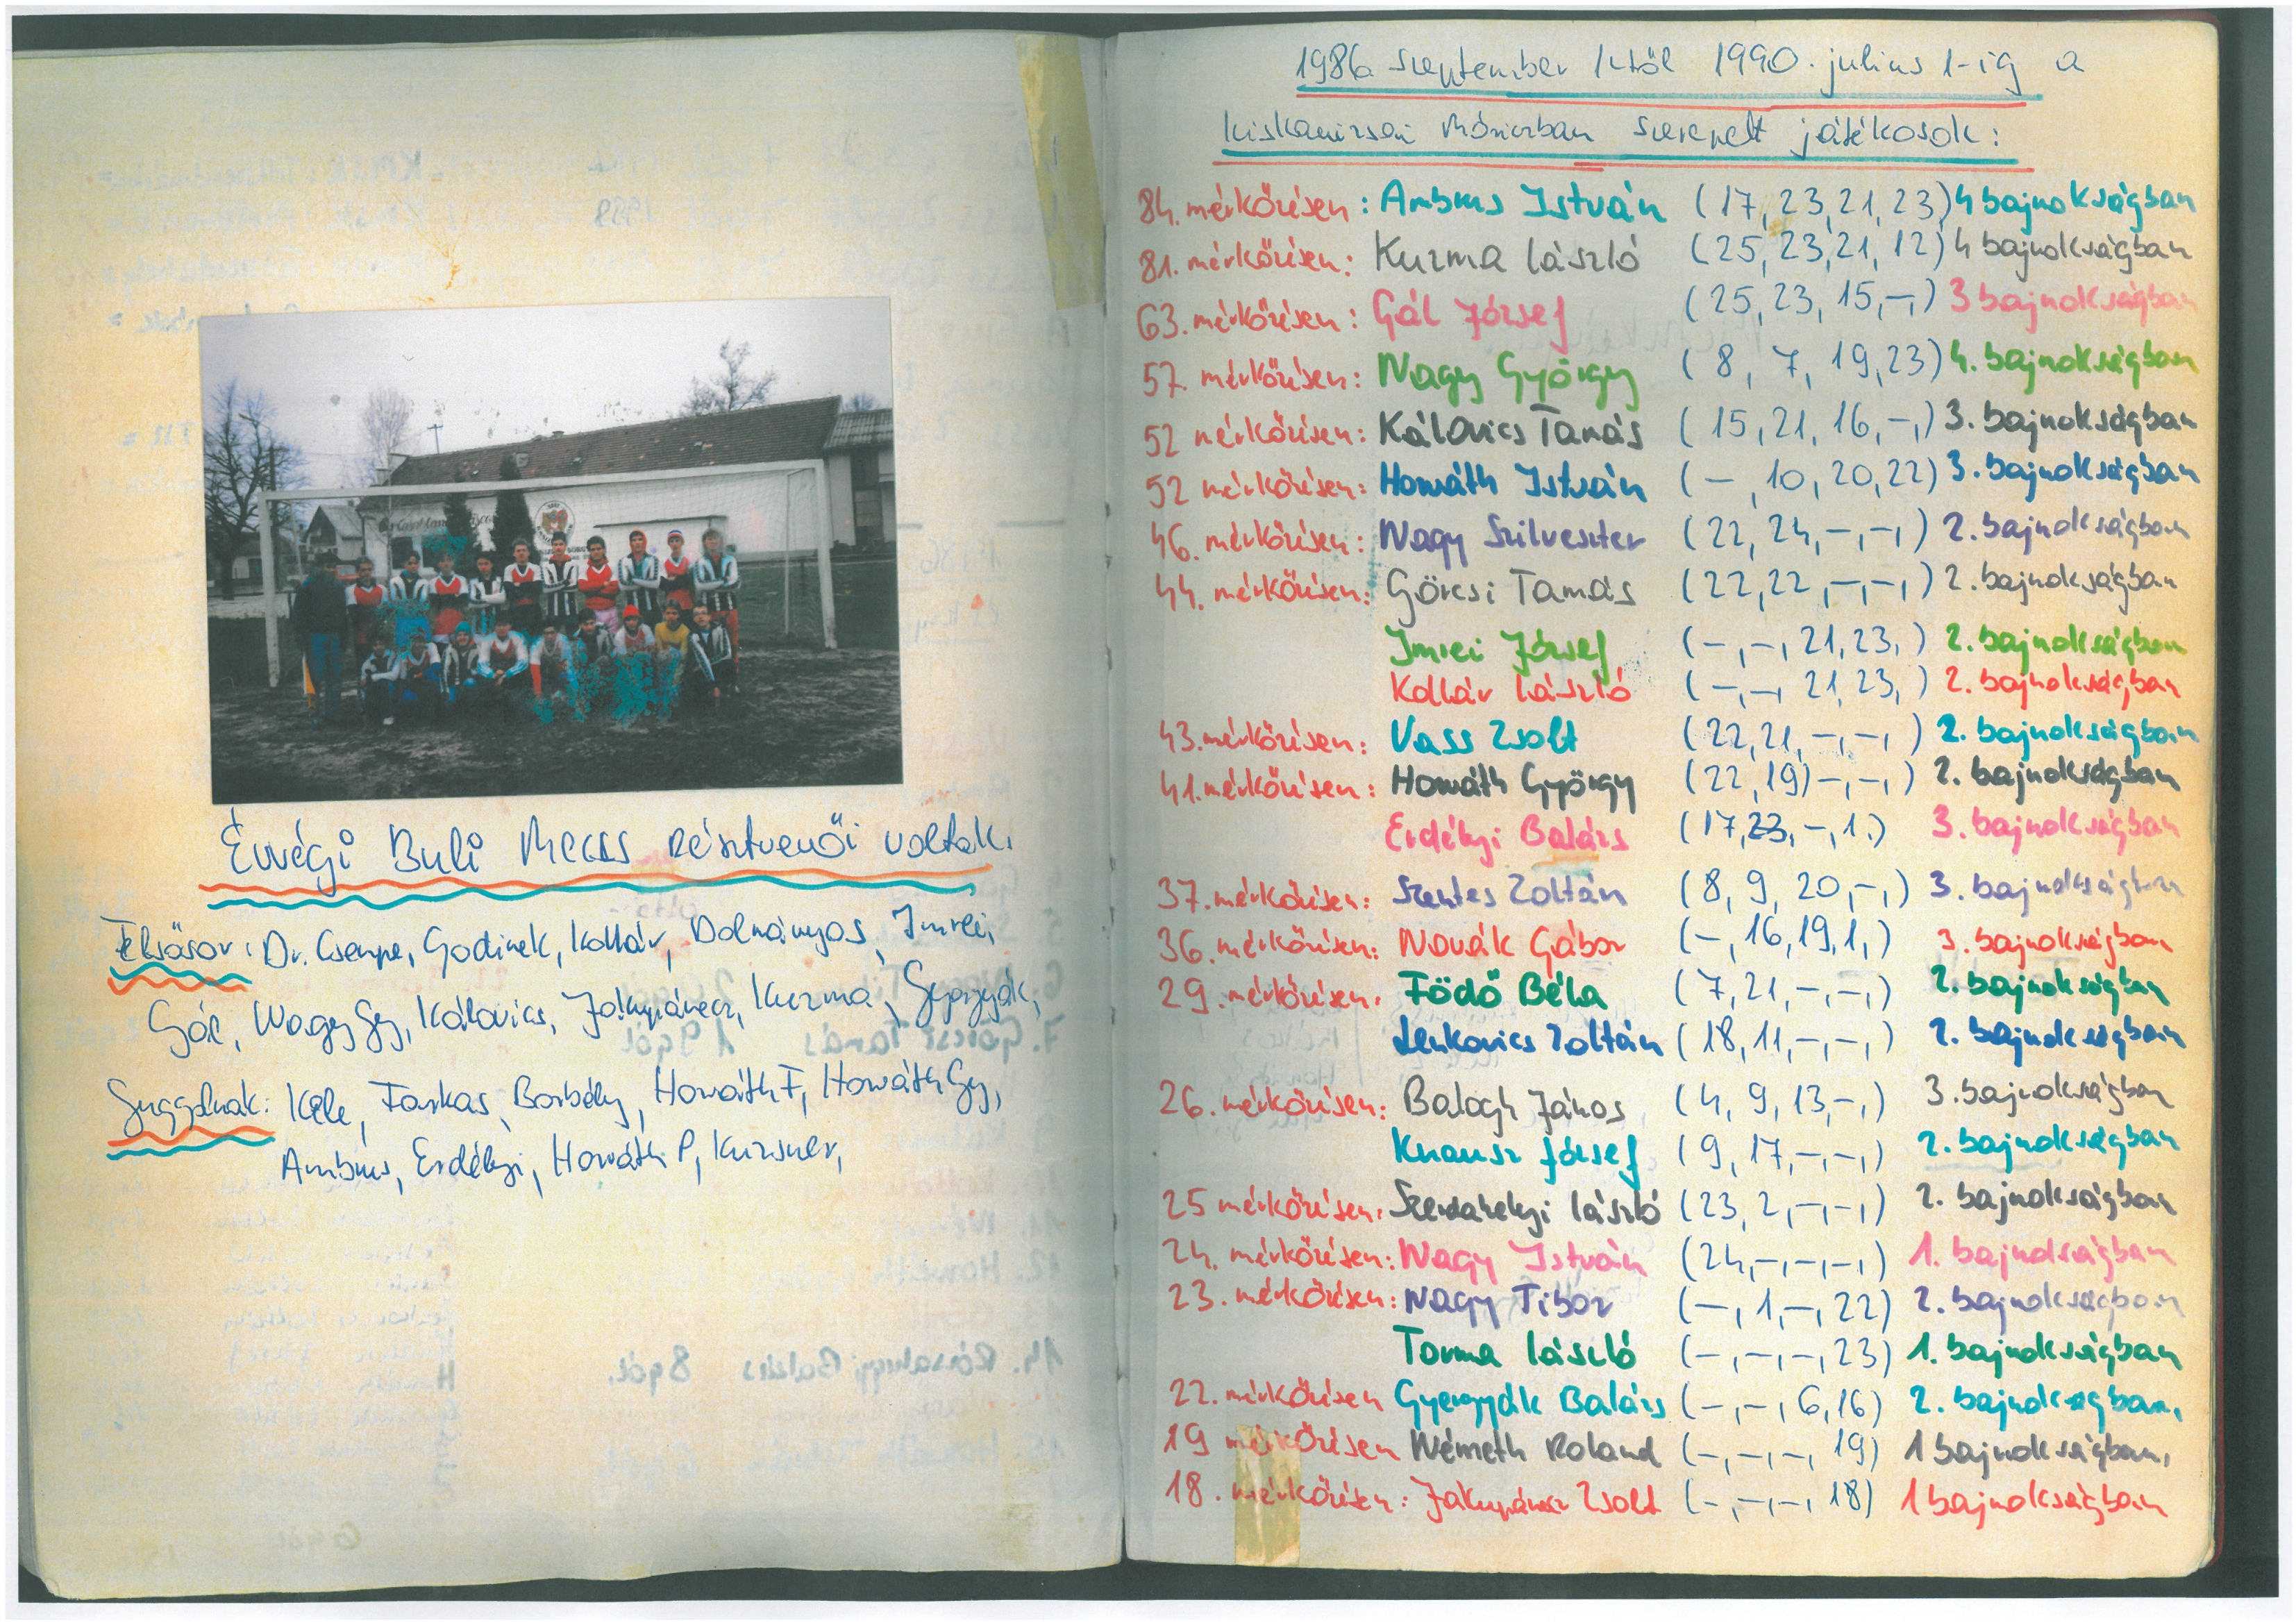 Évvégi Buli Meccs résztvevői voltak.
Felsősor: Dr. Csempe, Godinek, Kollár, Dolmányos, Imrei,
Gál, Nagy Gy, Kálovics, Jakupánecz, Kuzma, Gyergyák,
Guggolnak: Kele, Farkas, Borbély, Horváth F, Horváth Gy,
Ambrus, Erdélyi, Horváth P, Kurzner,
1986 szeptember 1-től 1990. julius 1-ig a
kiskanizsai Móriczban szerepelt játékosok:
84. mérkőzésen: Ambrus István (17, 23, 21, 23) 4 bajnokságban
81. mérkőzésen: Kuzma László (25, 23, 21, 12) 4 bajnokságban
63. mérkőzésen: Gál József (25, 23, 15, -,) 3 bajnokságban
57. mérkőzésen: Nagy György (8, 7, 19, 23) 4. bajnokságban
52 mérkőzésen: Kálovics Tamás (15, 21, 16, -,) 3. bajnokságban
52 mérkőzésen: Horváth István (-, 10, 20, 22) 3. bajnokságban
46. mérkőzésen: Nagy Szilveszter (22, 24, -, -,) 2. bajnokságban
44. mérkőzésen: Göcsi Tamás (22, 22, -, -,) 2. bajnokságban
Imrei József (-, -, 21, 23,) 2. bajnokságban
Kollár László (-, -, 21, 23,) 2. bajnokságban
43. mérkőzésen: Vass Zsolt (22, 21, -, -,) 2. bajnokságban
41. mérkőzésen: Horváth György (22, 19) -, -,) 2. bajnokságban
Erdélyi Balázs (17, 23, -, 1.) 3. bajnokságban
37. mérkőzésen: Szentes Zoltán (8, 9, 20, -,) 3. bajnokságban
36. mérkőzésen: Novák Gábor (-, 16, 19, 1,) 3. bajnokságban
29. mérkőzésen. Födő Béla (7, 21, -, -,) 2. bajnokságban
Lenkovics Zoltán (18, 11, -, -,) 2. bajnokságban
26. mérkőzésen: Balogh János (4, 9, 13, -,) 3. bajnokságban
Knausz József (9, 17, -, -,) 2. bajnokságban
25 mérkőzésen. Szerdahelyi László (23, 2, -, -,) 2. bajnokságban
24. mérkőzésen: Nagy István (24, -, -, -,) 1. bajnokságban
23. mérkőzésen: Nagy Tibor (-, 1, -, 22) 2. bajnokságban
Torma László (-, -, -, 23) 1. bajnokságban
22. mérkőzésen Gyergyák Balázs (-, -, 6, 16) 2. bajnokságban,
19 mérkőzésen Németh Roland (-, -, -, 19) 1 bajnokságban,
18. mérkőzésen: Jakupánecz Zsolt (-, -, -, 18) 1 bajnokságban